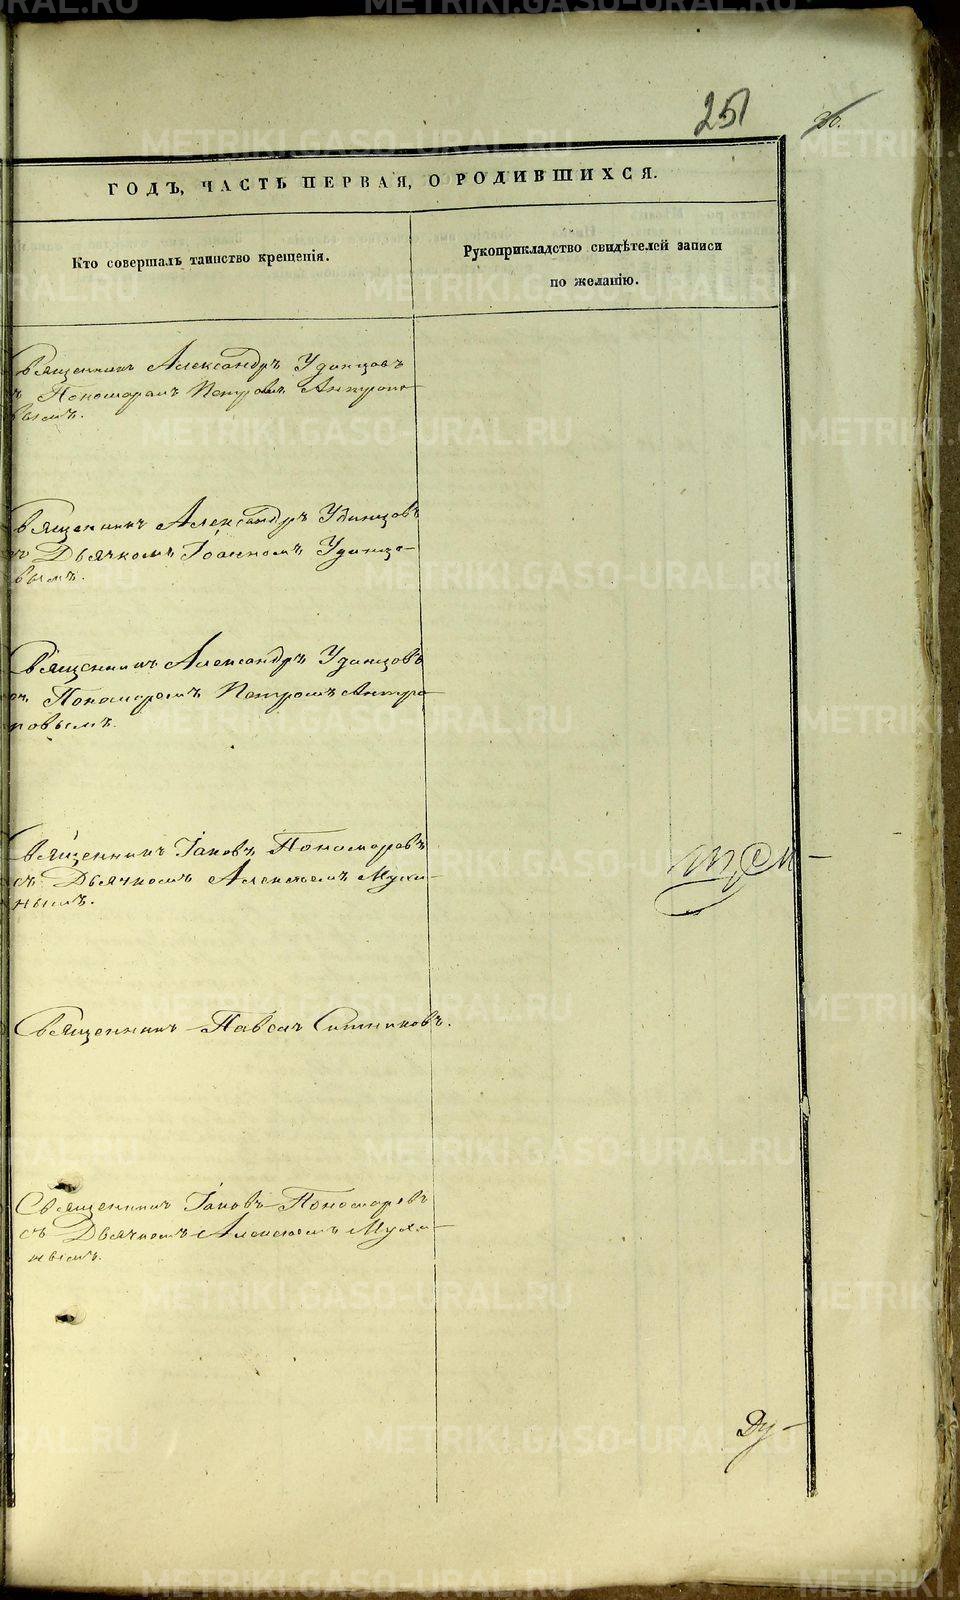 251
26.
ГОДЪ, ЧАСТЬ ПЕРВАЯ, О РОДИВШИХСЯ.
Кто совершалъ таинство крещенія.
Рукоприкладство свидѣтелей записи
по желанію.
Священникъ Александръ Удинцовъ
съ Пономаремъ Петромъ Антропо-
вымъ.
Священникъ Александръ Удинцовъ
съ Дьячкомъ Іоанномъ Удинцо-
вымъ.
Священникъ Александръ Удинцовъ
съ Пономаремъ Петромъ Антро-
повымъ.
Священникъ Іаковъ Пономаревъ
съ Дьячкомъ Алексѣемъ Мухи-
нымъ.
Священникъ Павелъ Ситниковъ.
Священникъ Іаковъ Пономаревъ
съ Дьячкомъ Алексѣемъ Мухи-
нымъ.
Ду-
METRIKI.GASO-URAL.RU